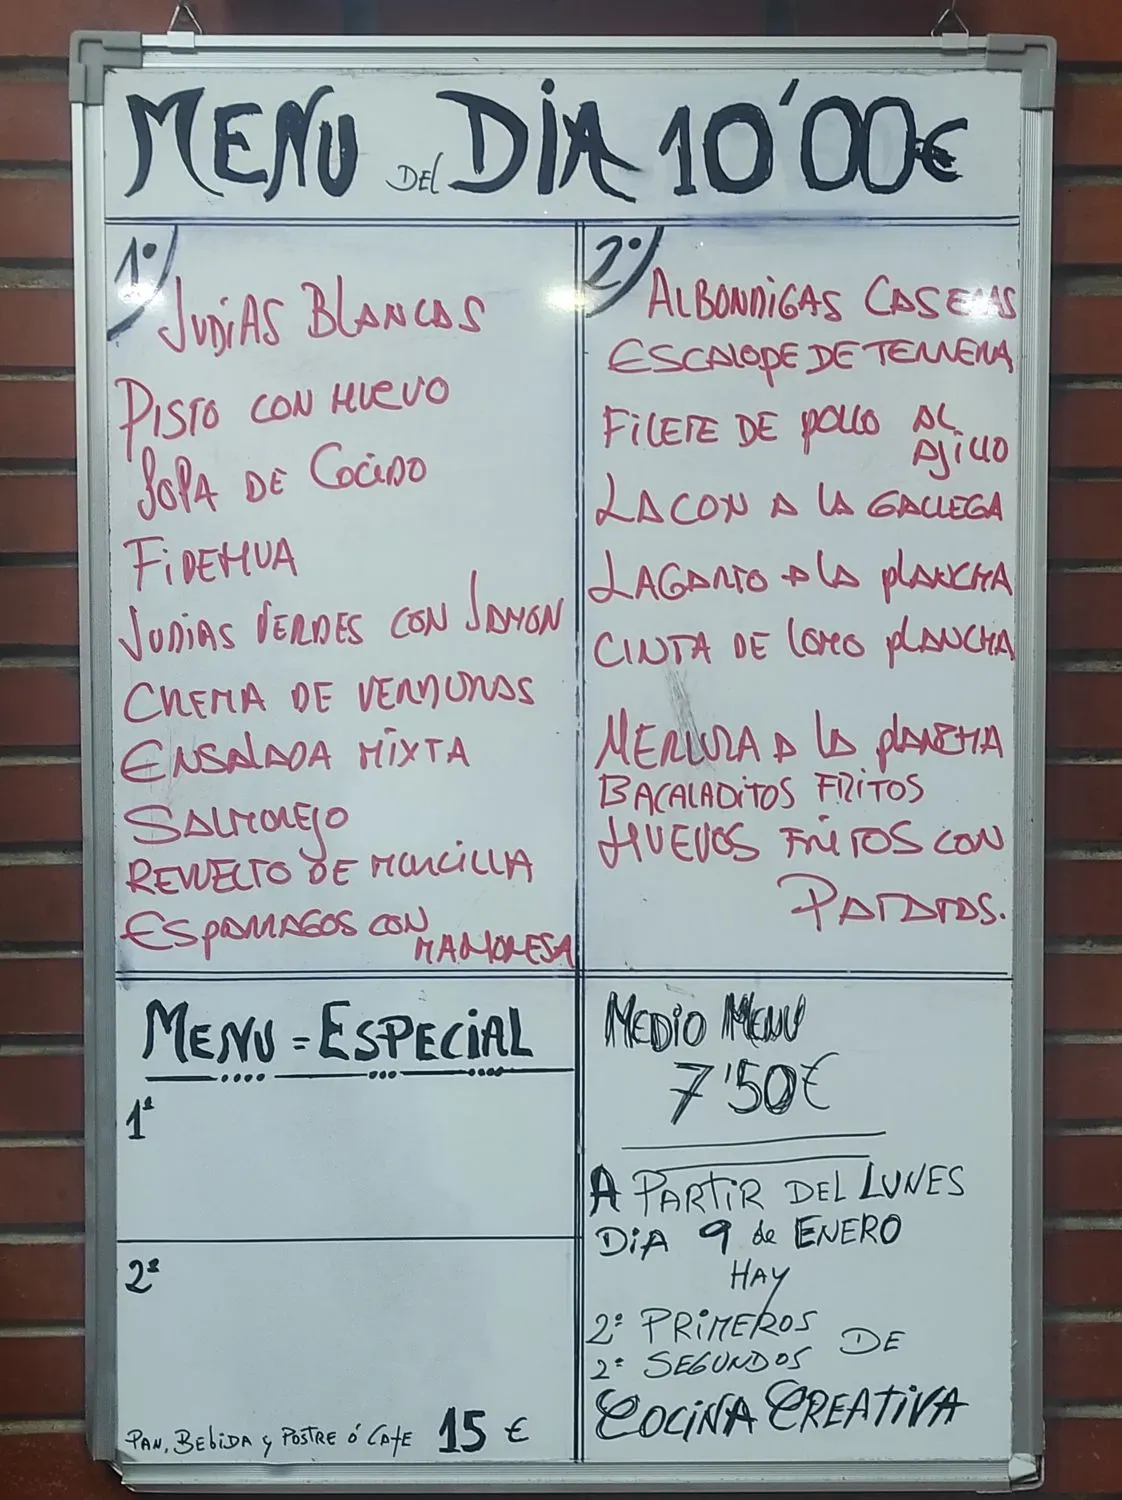 MENU DEL DÍA 10'00€
1º
JUDIAS BLANCAS
PISTO CON HUEVO
SOPA DE COCIDO
FIDEHUA
JUDIAS VERDES CON JAMON
CREMA DE VERDURAS
ENSALADA MIXTA
SALMOREJO
REVUELTO DE MORCILLA
ESPARRAGOS CON
MAHONESA
2º
ALBONDIGAS CASERAS
ESCALOPE DE TERNERA
FILETE DE POLLO AL
AJILLO
LACON A LA GALLEGA
LAGARTO A LA PLANCHA
CINTA DE LOMO PLANCHA
MERLUZA A LA PLANCHA
BACALADITOS FRITOS
HUEVOS FRITOS CON
PATATAS.
MENU = ESPECIAL
1º
2º
PAN, BEBIDA y POSTRE ó CAFE 15 €
MEDIO MENU
7'50€
A PARTIR DEL LUNES
DIA 9 de ENERO
HAY
2º PRIMEROS
2º SEGUNDOS DE
COCINA CREATIVA